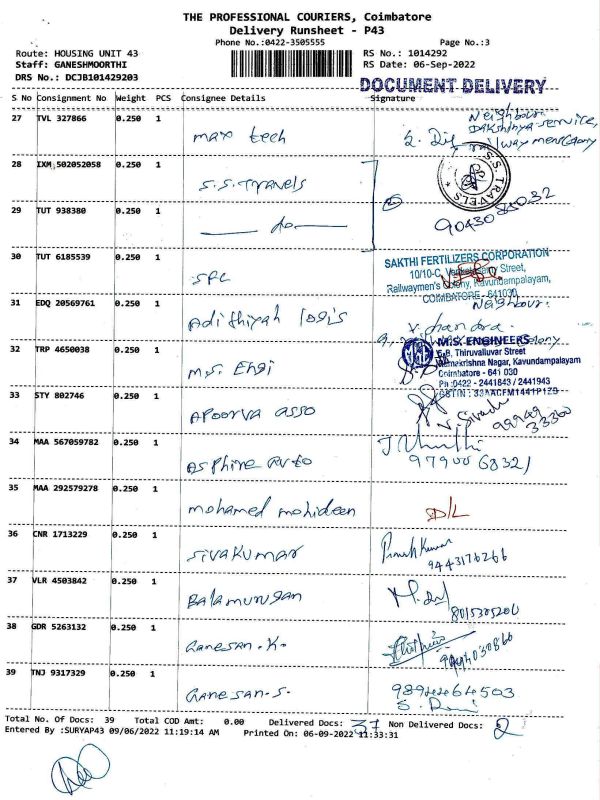 THE PROFESSIONAL COURIERS, Coimbatore
Delivery Runsheet - P43
Phone No.:0422-3505555 Page No.:3
Route: HOUSING UNIT 43 RS No.: 1014292
Staff: GANESHMOORTHI RS Date: 06-Sep-2022
DRS No.: DCJB101429203
DOCUMENT DELIVERY
S No Consignment No Weight PCS Consignee Details Signature
27 TVL 327866 0.250 1
max tech
Neighbour.
Dakshinya service,
28 IXM 502052058 0.250 1
S.S. Travels
S.S. TRAVELS
29 TUT 938380 0.250 1
do
30 TUT 6185539 0.250 1
SFC
SAKTHI FERTILIZERS CORPORATION
10/10-C, Street,
Railwaymen's Colony, Kavundampalayam,
COIMBATORE - 641030
31 EDQ 20569761 0.250 1
Adithiyah logis
Neighbour.
V. chandra
32 TRP 4650038 0.250 1
M.S. Engi
M.S. ENGINEERS
Thiruvalluvar Street
Ramakrishna Nagar, Kavundampalayam
Coimbatore - 641 030
Ph :0422 - 2441843 / 2441943
GSTIN : 33AACFM1441P1Z9
33 STY 802746 0.250 1
Apoorva asso
99949 33360
34 MAA 567059782 0.250 1
Asphire auto
9790068321
35 MAA 292579278 0.250 1
mohamed mohideen
D/L
36 CNR 1713229 0.250 1
Sivakumar
9443176266
37 VLR 4503842 0.250 1
Balamurugan
38 GDR 5263132 0.250 1
Ganesan. K.
39 TNJ 9317329 0.250 1
Ganesan. S.
S. Rani
Total No. Of Docs: 39 Total COD Amt: 0.00 Delivered Docs: 37 Non Delivered Docs: 2
Entered By :SURYAP43 09/06/2022 11:19:14 AM Printed On: 06-09-2022 11:33:31